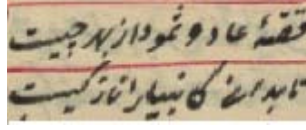 قصهٔ عاد و ثمود از بهر چیست
تا بدانی کانبیا را نازکیست